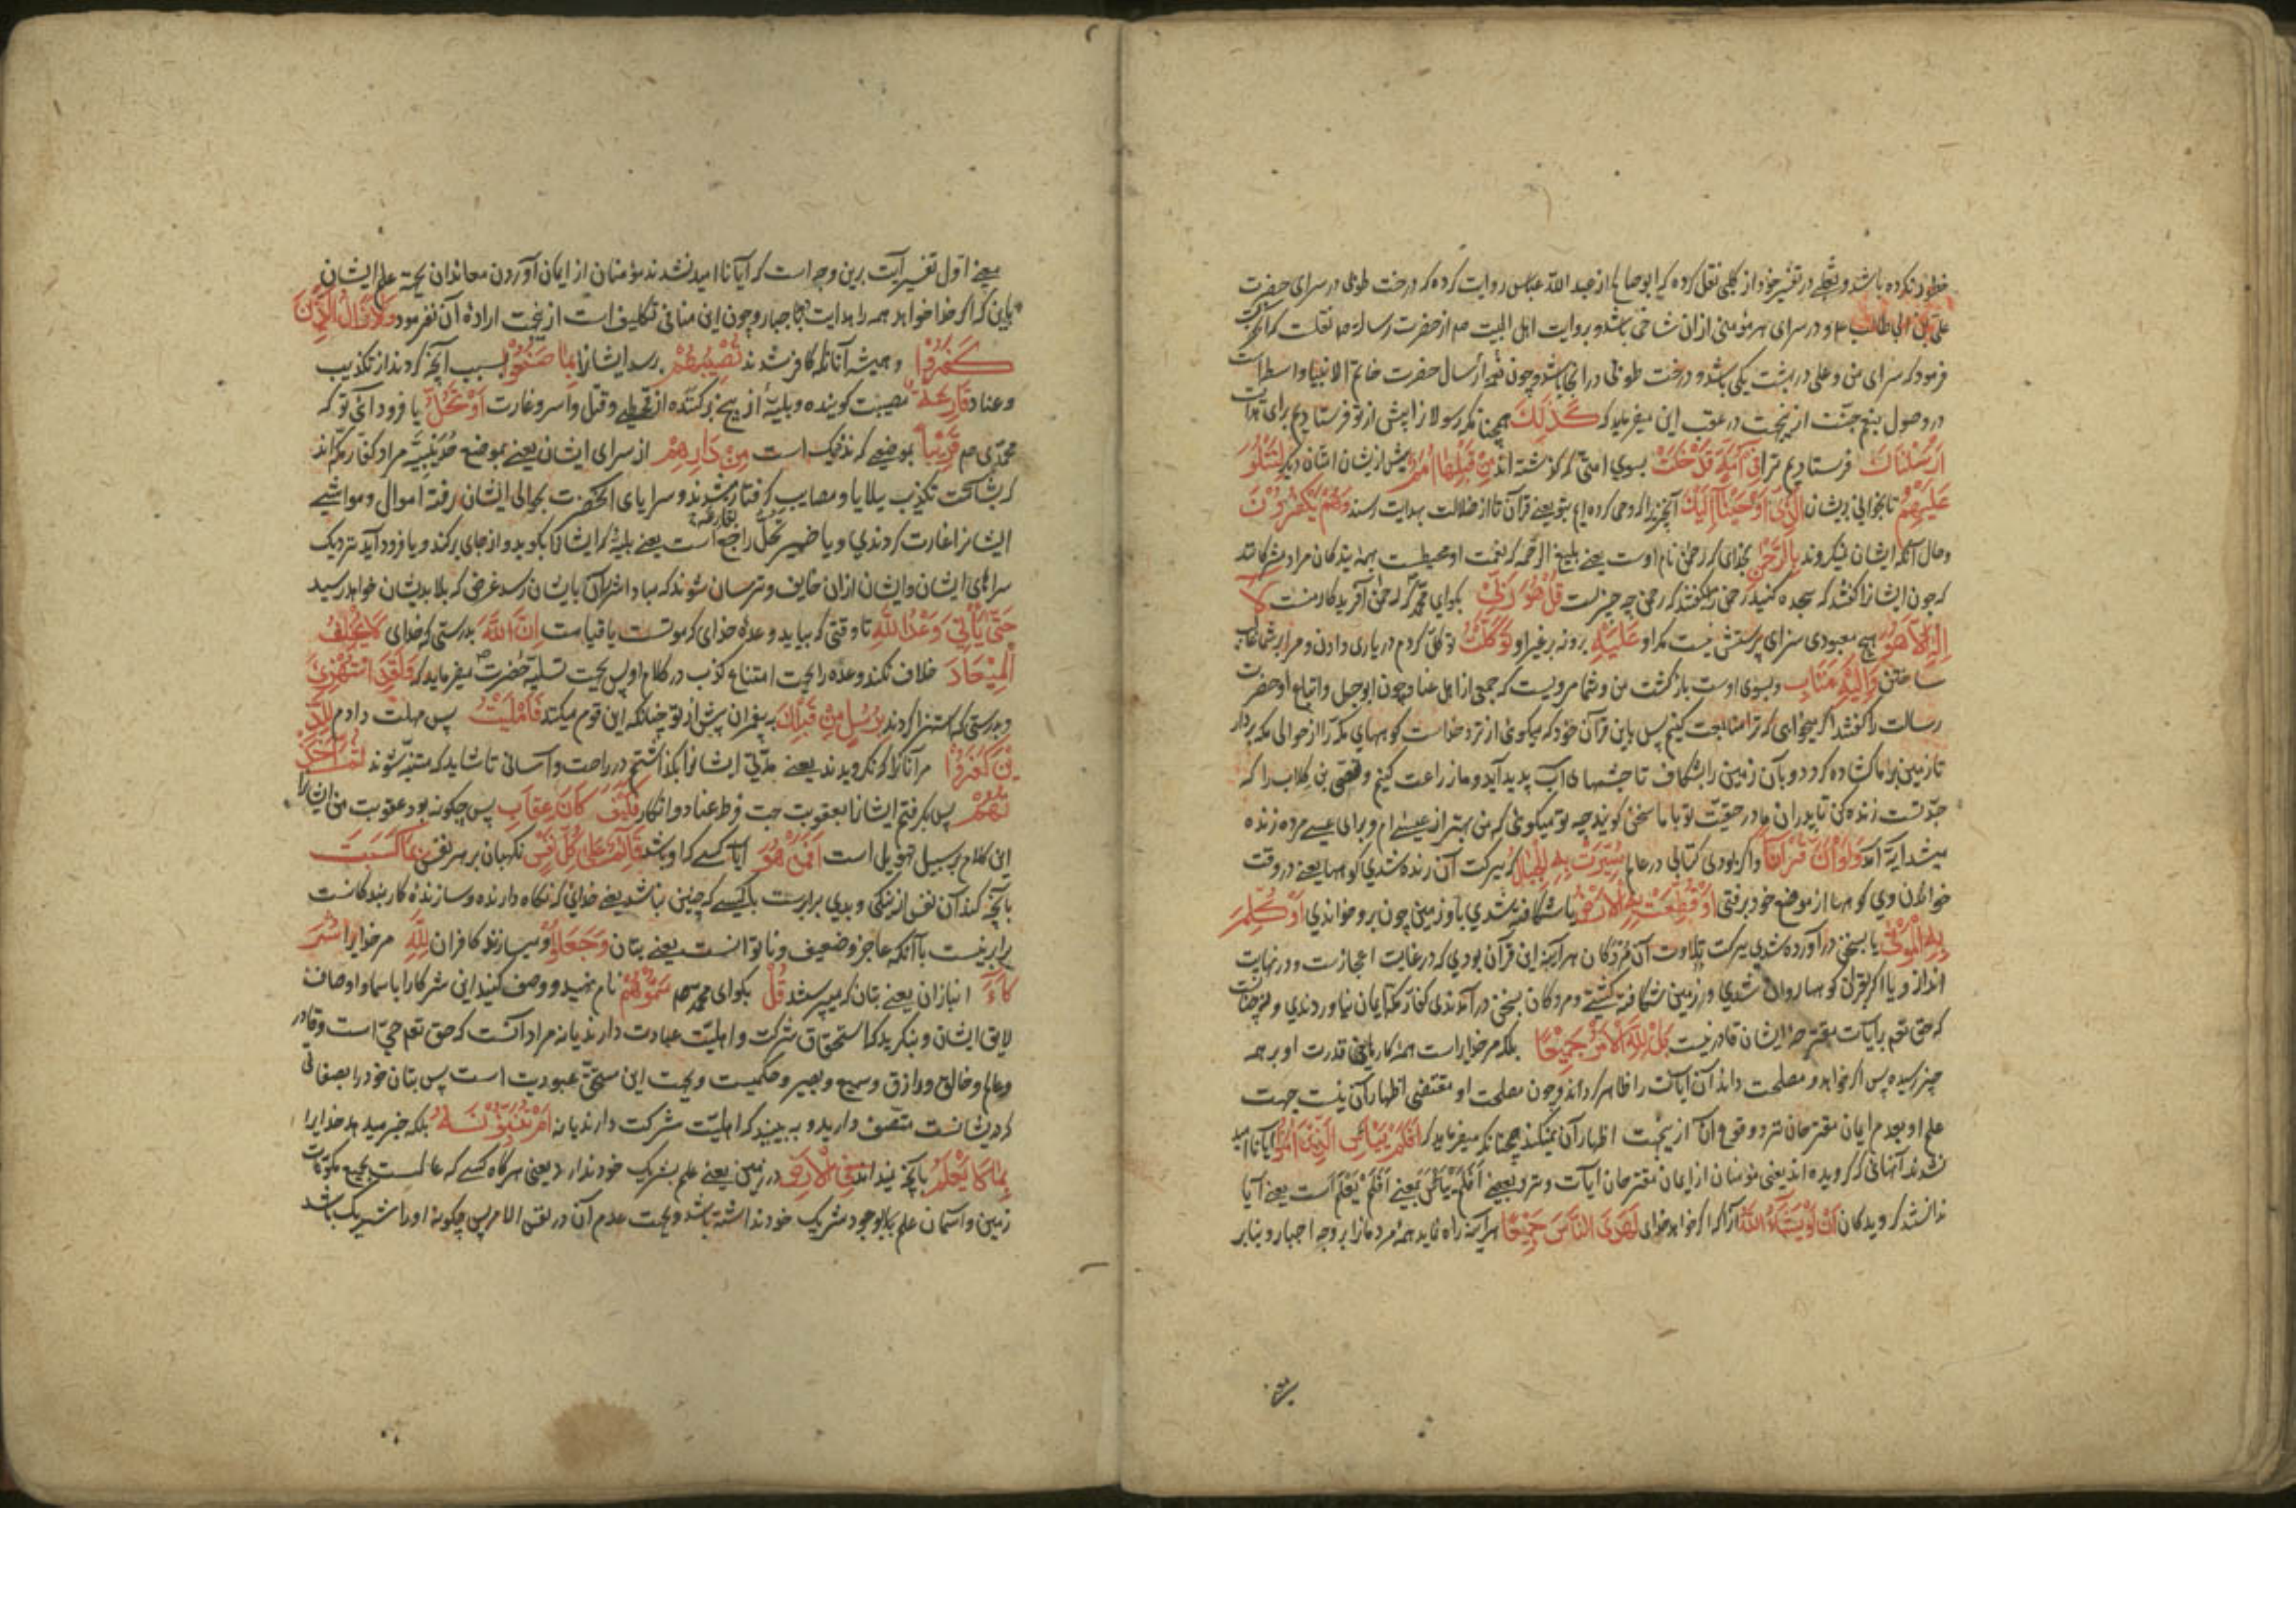 خطور نکرده باشد و ثعلبی در تفسیر خود از کلبی نقل کرده که ابوصالح از عبد الله عباس روایت کرده که درخت طوبی در سرای حضرت
علی بن ابی طالب علم و در سرای هر مؤمنی از ان شاخی باشد و بروایت اهل البیت عم از حضرت رسالة صم نقلست که آنحضرت
فرمود که سرای من و علی در بهشت یکی باشد و درخت طوبی در انجا باشد و چون ارسال حضرت خاتم الانبیا واسطه است
در وصول بنعیم جنت ازینجهت در عقب این میفرماید که كَذَلِكَ همچنانکه رسولانرا پیش از تو فرستادیم برای هدایت
اَرْسَلْنَاكَ فرستادیم ترا فِي اُمَّةٍ قَدْ خَلَتْ بسوی امتی که گذشته اند مِنْ قَبْلِهَا اُمَمٌ پیش از یشان امتان دیگر لِتَتْلُوَ
عَلَيْهِمُ تا بخوانی بریشان الَّذِي اَوْحَيْنَا اِلَيْكَ آنچیزرا که وحی کرده ایم بتو یعنی قرآن تا از ضلالت بهدایت رسند وَهُمْ يَكْفُرُونَ
و حال آنکه ایشان نمیکروند بِالرَّحْمٰنِ بخدای که رحمن نام اوست یعنی بلیغ الرحمه که نعمت او محیطست بهمه بندکان مراد مشرکانند
که چون ایشانرا کفتند که سجده کنید رحمن را میکفتند که رحمن چه چیزست قُلْ هُوَ رَبِّي بکو ای محمد که رحمن آفریدکار منست لَا
اِلٰهَ اِلَّا هُوَ هیچ معبودی سزای پرستش نیست مکر او عَلَيْهِ برو نه بر غیر او تَوَكَّلْتُ توکل کردم در یاری دادن و مرا بر شما غالب
ساختن وَاِلَيْهِ مَتَابِ و بسوی اوست بازکشت من و شما مرویست که جمعی از اهل عناد چون ابوجهل و اتباع او حضرت
رسالت را کفتند اکر میخواهی که ترا متابعت کنیم پس باین قرآن خود که میکوئی از نزد خداست کوههای مکه را از حوالی مکه بردار
تا زمین بر ما کشاده کردد و بآن زمین را بشکاف تا چشمهای آب پدید آید و ما زراعت کنیم و قصی بن کلاب را که
جد تست زنده کن تا پدران ما در حقیت تو با ما سخن کویند چه تو میکوئی که من بهتر از عیسی ام و برای عیسی مرده زنده
میشد آیة آمد وَلَوْ اَنَّ قُرْاٰنًا و اکر بودی کتابی در عالم سُيِّرَتْ بِهِ الْجِبَالُ که ببرکت آن رنده شدی کوهها یعنی در وقت
خواندن وی کوهها از موضع خود برفتی اَوْ قُطِّعَتْ بِهِ الْاَرْضُ یا شکافته شدی باو زمین چون برو خواندی اَوْ كُلِّمَ
بِهِ الْمَوْتٰى یا بسخن در آورده شدی ببرکت تلاوت آن مردکان هر آینه این قرآن بودی که در غایت اعجازست و در نهایت
انذار و یا اکر بقرآن کوهها روان شدی و زمین شکافته کشتی و مردکان بسخن در آمدندی کفار مکه ایمان نیاوردندی و نه چنانست
که حق تعم بر آیات مقترحه ایشان قادر نیست بَلْ لِلّٰهِ الْاَمْرُ جَمِيعًا بلکه مر خدایراست همه کارها یعنی قدرت او بر همه
چیز رسیده پس اکر خواهد و مصلحت داند آن آیات را ظاهر کرداند و چون مصلحت او مقتضی اظهار آن نیست جهت
علم او بعدم ایمان مقترحان نزد وقوع آن ازینجهت اظهار آن نمیکند چنانکه میفرماید که اَفَلَمْ يَيْاَسِ الَّذِينَ اٰمَنُوا آیا ناامید
نشدند آنهائی که کرویده اند یعنی مؤمنان از ایمان مقترحان آیات و نزد بعضی اَفَلَمْ يَيْاَسْ بمعنی اَفَلَمْ يَعْلَمْ است یعنی آیا
ندانستند کرویدکان اَنْ لَوْ يَشَاءُ اللّٰهُ آنرا که اکر خواهد خدای لَهَدَى النَّاسَ جَمِيعًا هر آینه راه نماید همه مردمانرا بر وجه اجبار و بنابر
معنی اول تفسیر آیت برین وجه است که آیا ناامید نشدند مؤمنان از ایمان آوردن معاندان بجهة علم ایشان
باین که اکر خدا خواهد همه را هدایت کند اجبار و چون این منافی تکلیف است ازینجهت اراده آن نفرمود وَلَا يَزَالُ الَّذِينَ
كَفَرُوا و همیشه آنانکه کافر شدند تُصِيبُهُمْ رسد ایشانرا بِمَا صَنَعُوا بسبب آنچه کردند از تکذیب
و عناد قَارِعَةٌ مصیبت کوبنده و بلیه از بیخ برکننده از قحطی و قتل و اسر و غارت اَوْ تَحُلُّ یا فرود آئی تو که
محمدی صم قَرِيبًا بموضعی که نزدیک است مِنْ دَارِهِمْ از سرای ایشان یعنی بموضع حُدَيْبِيَّه مراد کفار مکه اند
که بشامت تکذیب ببلایا و مصایب کرفتار میشدند و سرایای آنحضرت بحوالی ایشان رفته اموال و مواشی
ایشانرا غارت کردندی و یا ضمیر تحل راجع بقارعه است یعنی بلیه که ایشانرا بکوبد و از جای برکند و یا فرود آید نزدیک
سراهای ایشان و ایشان از ان خایف و ترسان شوند که مبادا شرر آن بایشان رسد غرض که بلا بدیشان خواهد رسید
حَتّٰى يَاْتِيَ وَعْدُ اللّٰهِ تا وقتی که بیاید وعده خدای که موتست یا قیامت اِنَّ اللّٰهَ بدرستی که خدای لَا يُخْلِفُ
الْمِيعَادَ خلاف نکند وعده را بجهت امتناع کذب در کلام او پس بجهت تسلیه حضرت ص میفرماید که وَلَقَدِ اسْتُهْزِئَ
و بدرستی که استهزا کردند بِرُسُلٍ مِنْ قَبْلِكَ به پیغمبران پیش از تو چنانکه این قوم میکنند فَاَمْلَيْتُ پس مهلت دادم لِلَّذِ
ينَ كَفَرُوا مر آنانرا که نکرویدند یعنی مدتی ایشانرا بکذاشتم در راحت و آسانی تا شاید که متنبه شوند ثُمَّ اَخَذْ
تُهُمْ پس بکرفتم ایشانرا بعقوبت جهت فرط عناد و انکار فَكَيْفَ كَانَ عِقَابِ پس چکونه بود عقوبت من ایشانرا
این کلام بر سبیل تهویلی است اَفَمَنْ هُوَ آیا کسی که او باشد قَائِمٌ عَلٰى كُلِّ نَفْسٍ نکهبان بر هر نفس بِمَا كَسَبَتْ
بآنچه کند آن نفس از نیکی و بدی برابرست با کسی که چنین نباشد یعنی خدائی که نکاه دارنده و سازنده کار بندکانست
برابر نیست با آنکه عاجز و ضعیف و ناتوانست یعنی بتان وَجَعَلُوا و میسازند کافران لِلّٰهِ مر خدایرا شُرَ
كَاءَ انبازان یعنی بتان که میپرستند قُلْ بکو ای محمد صم سَمُّوهُمْ نام نهید و وصف کنید این شرکا را باسما و اوصاف
لایق ایشان و بنکرید که استحقاق شرکت و اهلیت عبادت دارند یا نه مراد آنست که حق تعم حی است و قادر
و عالم و خالق و رازق و سمیع و بصیر و حکمیست و بجهت این مستحق عبودیت است پس بتان خود را بصفاتی
که دریشانست متصف دارید و به بینید که اهلیت شرکت دارند یا نه اَمْ تُنَبِّئُونَهُ بلکه خبر میدهد خدایرا
بِمَا لَا يَعْلَمُ بآنچه نمیداند فِي الْاَرْضِ در زمین یعنی علم بشریک خود ندارد یعنی هرکاه کسی که عالمست بجمیع مکونات
زمین و آسمان علم بوجود شریک خود نداشته باشد و بجهت عدم آن در نفس الامر پس چکونه او را شریک باشد